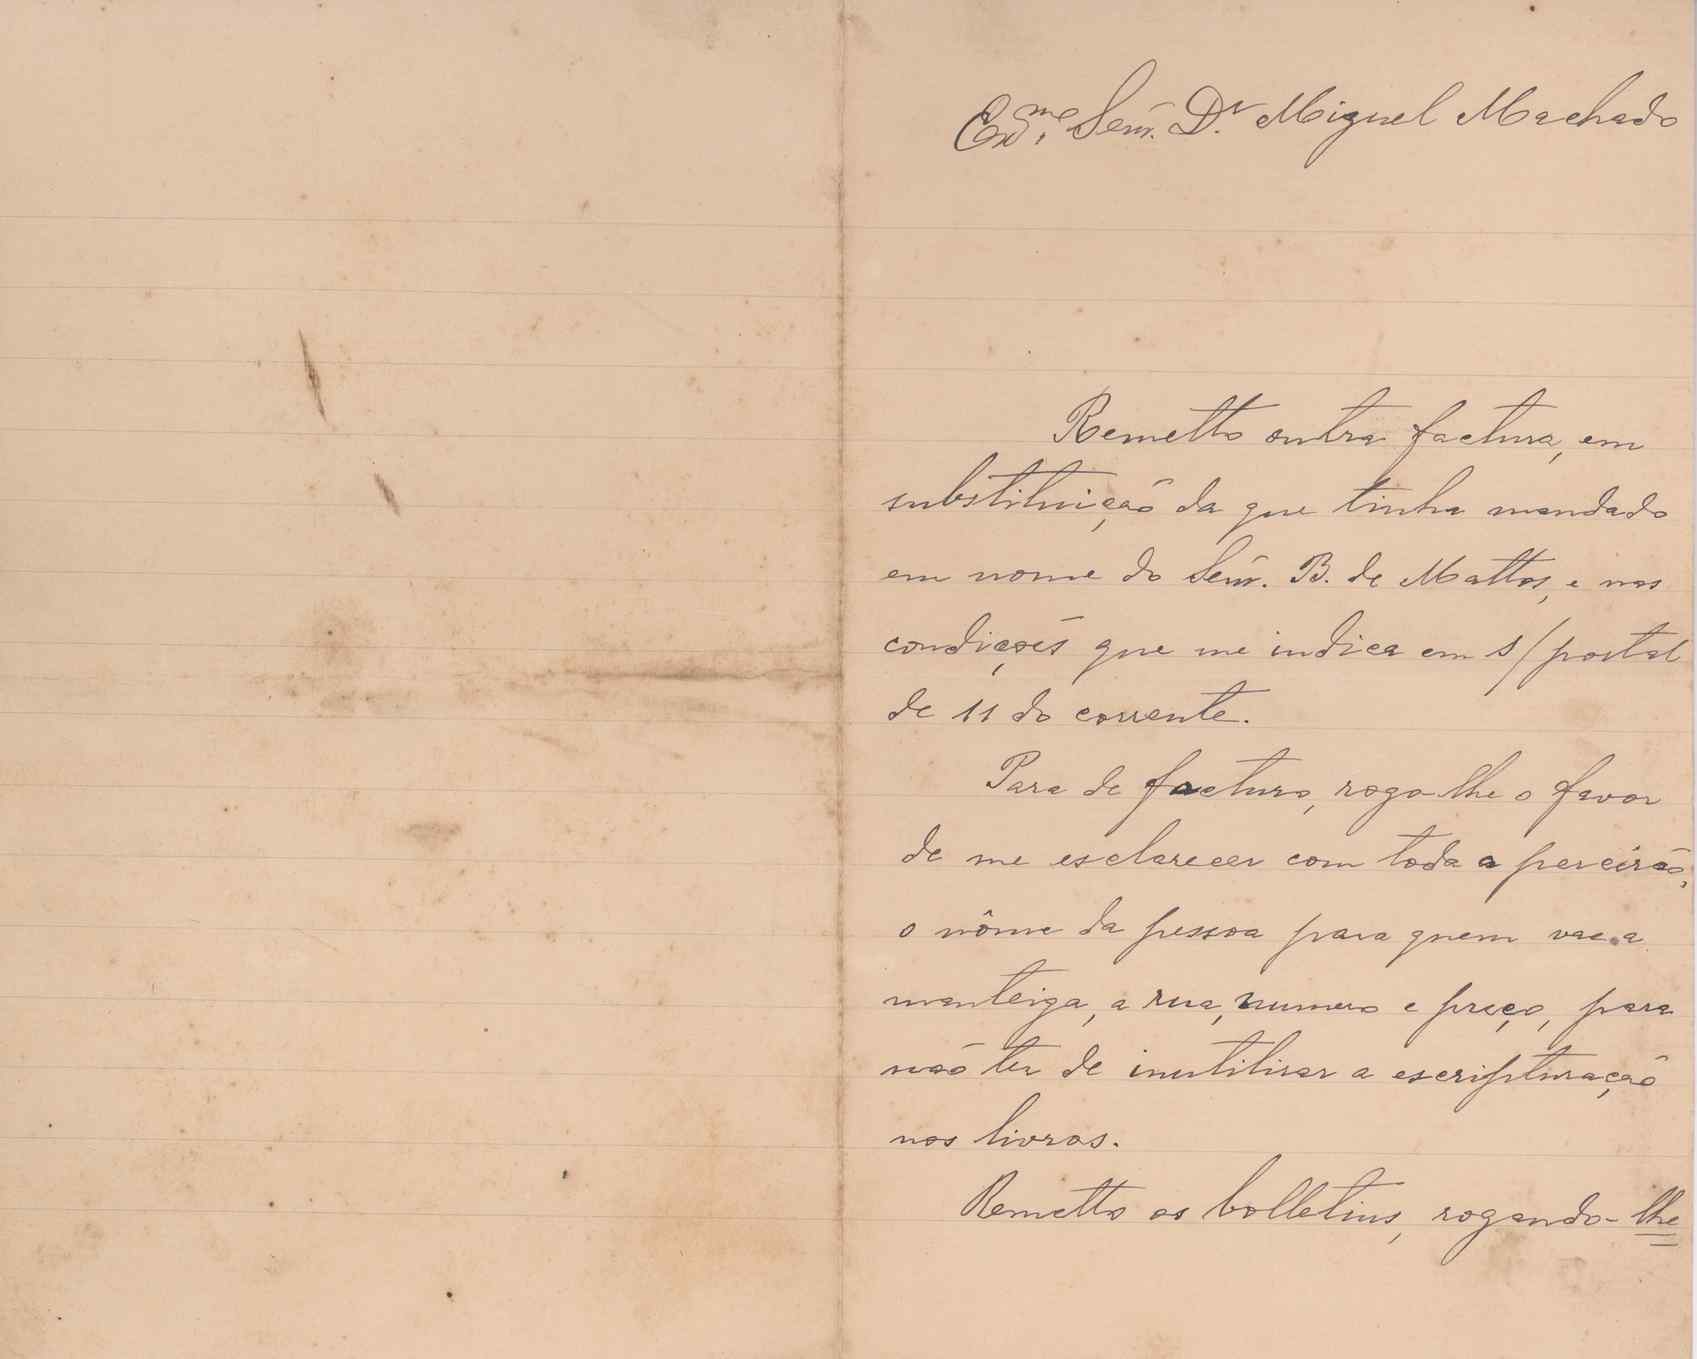 Exmo. Senr. Dr. Miguel Machado
Remetto outra factura, em
substituição da que tinha mandado
em nome do Senr. B. de Mattos, e nas
condições que me indica em s/ postal
de 11 do corrente.
Para de factura, rogo-lhe o favor
de me esclarecer com toda a percisão,
o nôme da pessoa para quem vae a
manteiga, a rua, numero e preço, para
não ter de inutilisar a escripturação
nos livros.
Remetto os bolletins, rogando-lhe